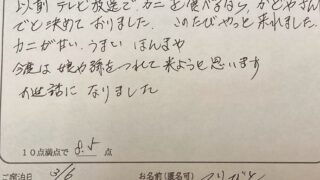 以前 テレビ放送で カニを食べるなら、かどやさん
でと決めておりました。 このたびやっと来れました。
カニが甘い、うまい ほんまや
今度は娘や孫をつれて来ようと思います
お世話に なりました
10点満点で 8.5 点
ご宿泊日 3/6 お名前(匿名可)